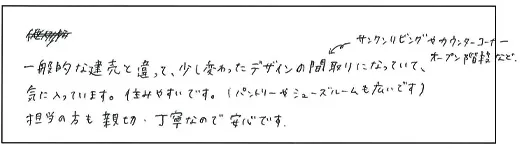 サンクンリビングやカウンターコーナー
オープン階段など。
一般的な建売と違って、少し変わったデザインの間取りになっていて、
気に入っています。住みやすいです。(パントリーやシューズルームも広いです)
担当の方も親切・丁寧なので安心です。